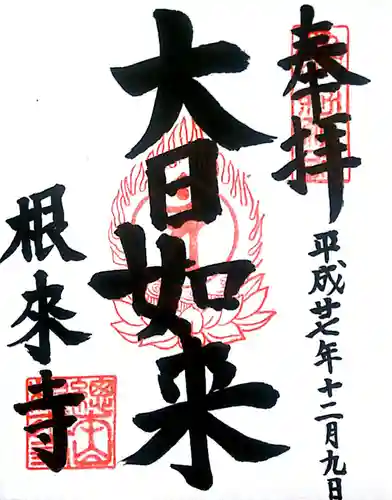 奉拝
平成廿七年十二月九日
大日如来
根來寺